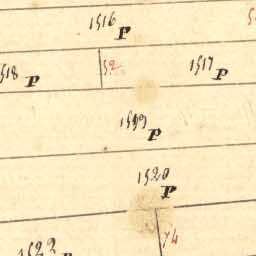 1516 P
1518 P 52 1517 P
1519 P
1520 P
74
1522 P